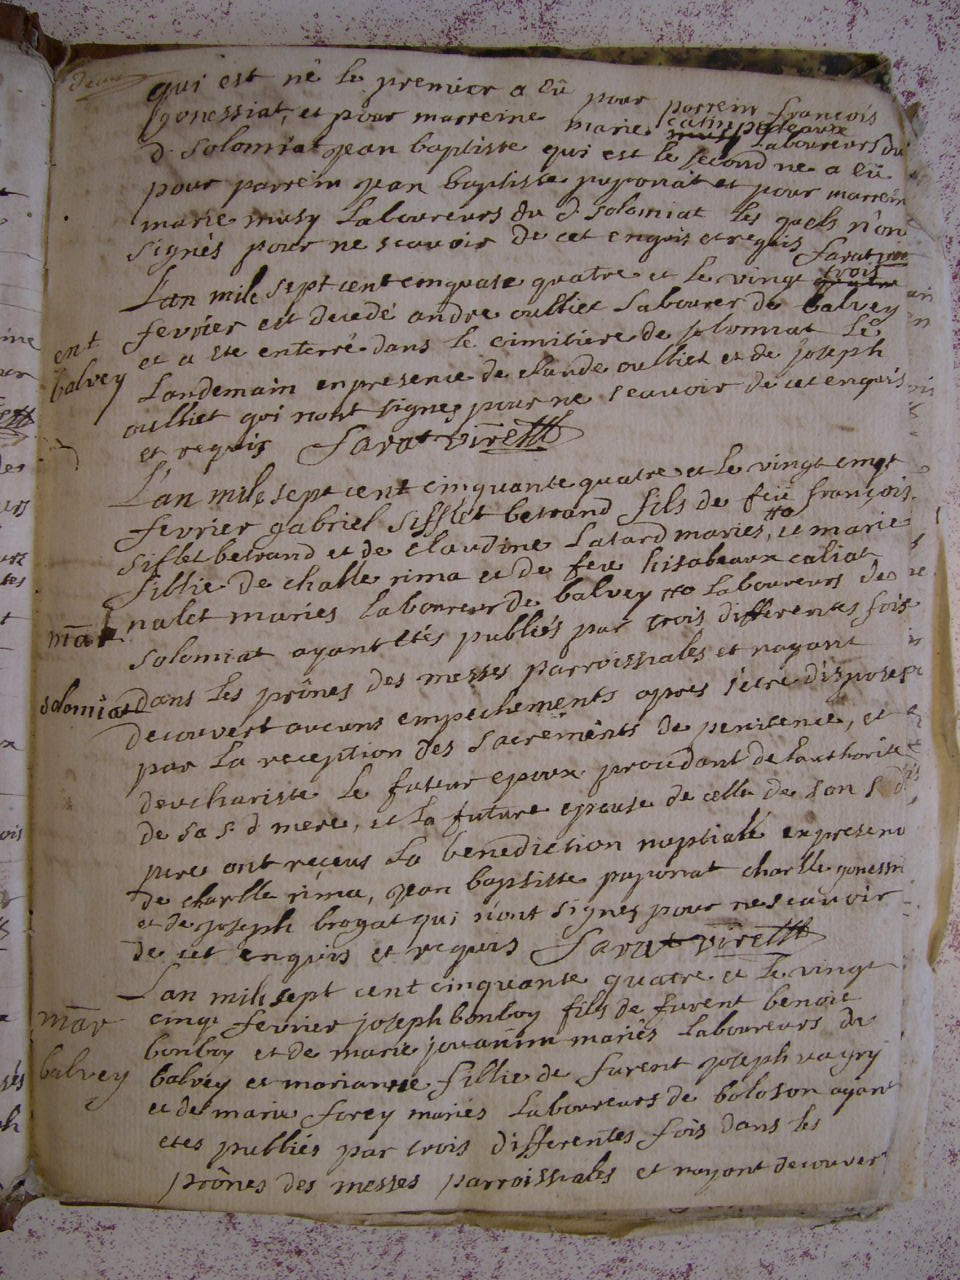 deux
qui est né le premier a eü pour parrein françois
gonessiat, et pour marreine marie catin Laboureurs du
d solomiat jean baptiste qui est le second ne a eü
pour parrein jean baptiste puponat et pour marrein
marie musy Laboureurs du d solomiat les quels n'on
signés pour ne scavoir de cet enquis et requis Sarat
L'an mile sept cent cinquate quatre et le vingt trois
fevrier est decedé andre oulliet Labourer de balvey
ent
et a ete enterré dans le cimitiere de solomiat le
balvey
Landemain en presence de claude oulliet et de joseph
oulliet qui nont signes pour ne scavoir de cet enquis
et requis Sarat vire
L'an mile sept cent cinquante quatre et le vingt cinq
fevrier gabriel sifflet betrand fils de feü françois
siflet betrand et de claudine Latard maries, et marie
fillie de challe rima et de feu hisabeaux caliat
nalet maries Laboureur de balvey Laboureurs de
mar
solomiat ayant etés publiés par trois differentes fois
solomiat
dans les prônes des messes parroissiales et nayant
decouvert aucuns empechements apres s'etre disposes
par la reception des sacrements de penitence, et
deucharistie le futur epoux procedant de Lauthorite
de sa s. d mere, et la future epouse de celle de son s d
pere ont receus la benediction nuptiale en presenc
de charlle rima, jean baptiste puponat charlle gonessi
et de joseph brogat qui n'ont signes pour ne scavoir
de cet enquis et requis Sarat vire
L'an mile sept cent cinquante quatre et le vingt
mar
cinqt fevrier joseph bonboy fils de furent benoit
bonboy et de marie jouanin mariés Laboureurs du
balvey
balvey et marianne fillie de furent joseph vagry
et de marie forey mariés Laboureurs de boloson ayant
etes publiés par trois differentes fois dans les
prônes des messes parroissiales et nayant decouver